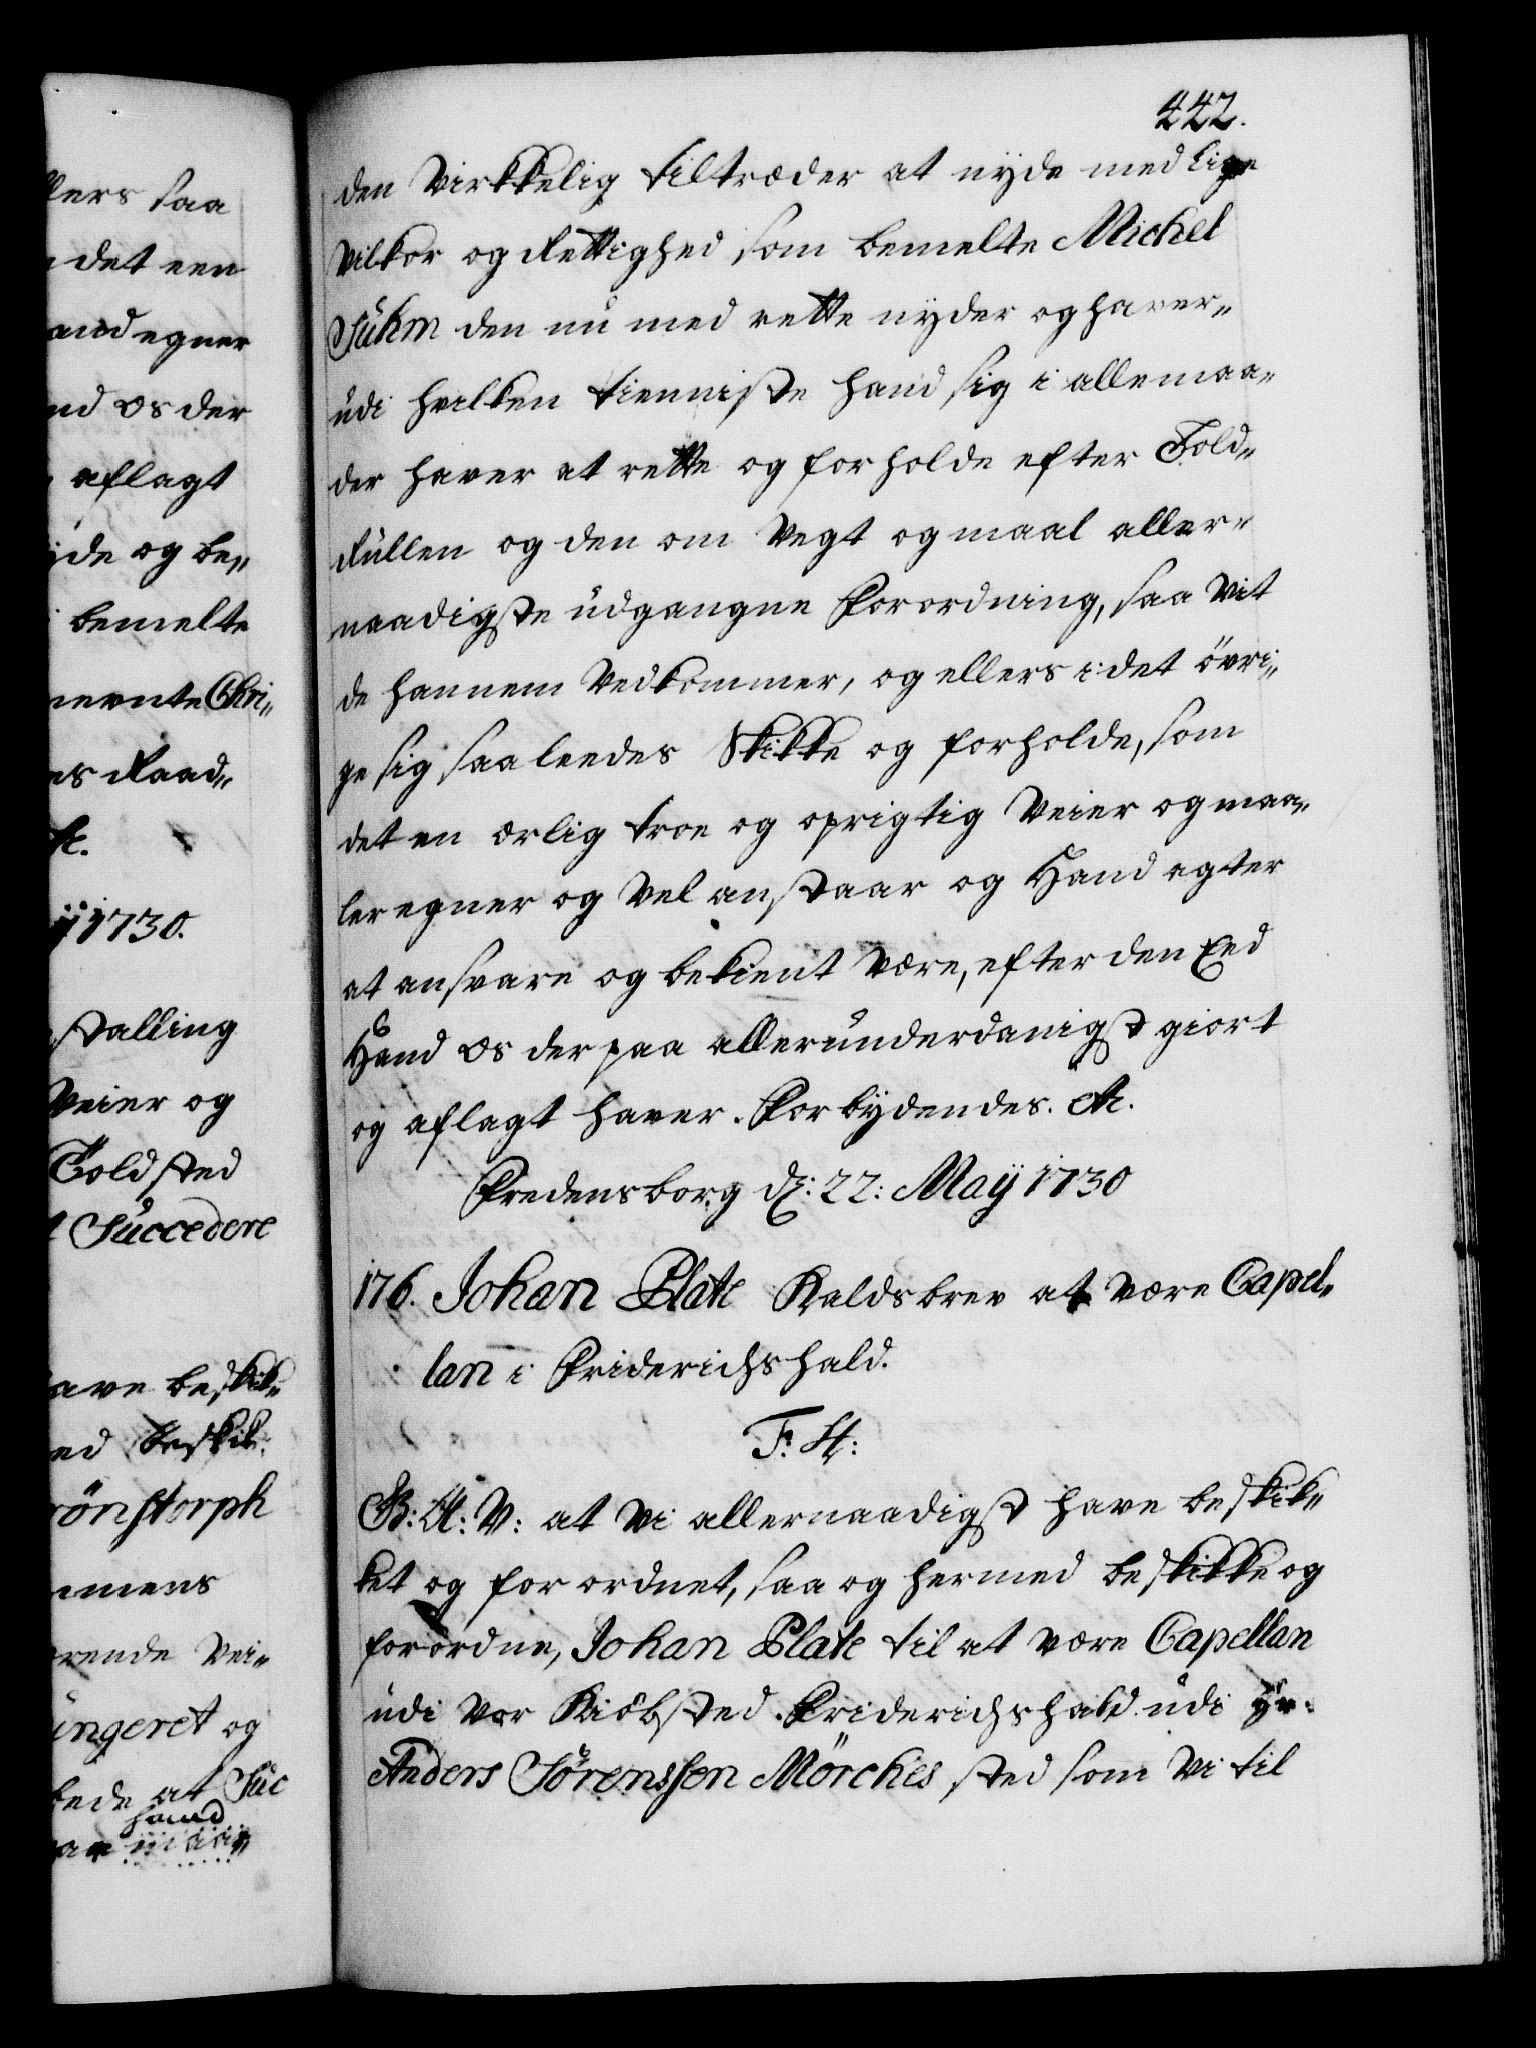 442.
den Virkkelig tiltræder at nyde med lige
vilkor og Rettighed som bemelte Michel
Suhm den nu med rette nyder og haver„
udi hvilken tienniste hand sig i allemaa„
der haver at rette og forholde efter Told„
Rullen og den om Vegt og maal aller„
naadigste udgangne Forordning, saa vit
de hannem Vedkommer, og ellers i det övri„
ge sig saaleedes Skikke og forholde, som
det en ærlig troe og oprigtig Veier og maa„
ler egner og vel anstaar og Hand agter
at ansvare og bekient være, efter den Eed
Hand os derpaa allerunderdanigst giort
og aflagt haver. Forbydendes. etc.
Fredensborg d: 22: Maÿ 1730
176. Johan Plate Kaldsbrev at være Capel„
lan i Friderichshald.
F: H:
G: A: V: at Vi allernaadigst have beskik„
ket og forordnet, saa og hermed beskikke og
forordne, Johan Plate til at være Capellan
udi vor Kiöbsted Friderichshald udi Hr.
Anders Sörenssen Mörches sted som Vi til
llers saa
det een
and egner
nd os der
aflagt
ide og be„
bemelte
nevnte Chri„
ns Raad„
etc.
1730.
stalling
Veier og
Toldsted
t Succedere
ave beskik„
ed beskik„
rönstorph
mens
rende Vei„
ungeret og
kede at Suc
hand